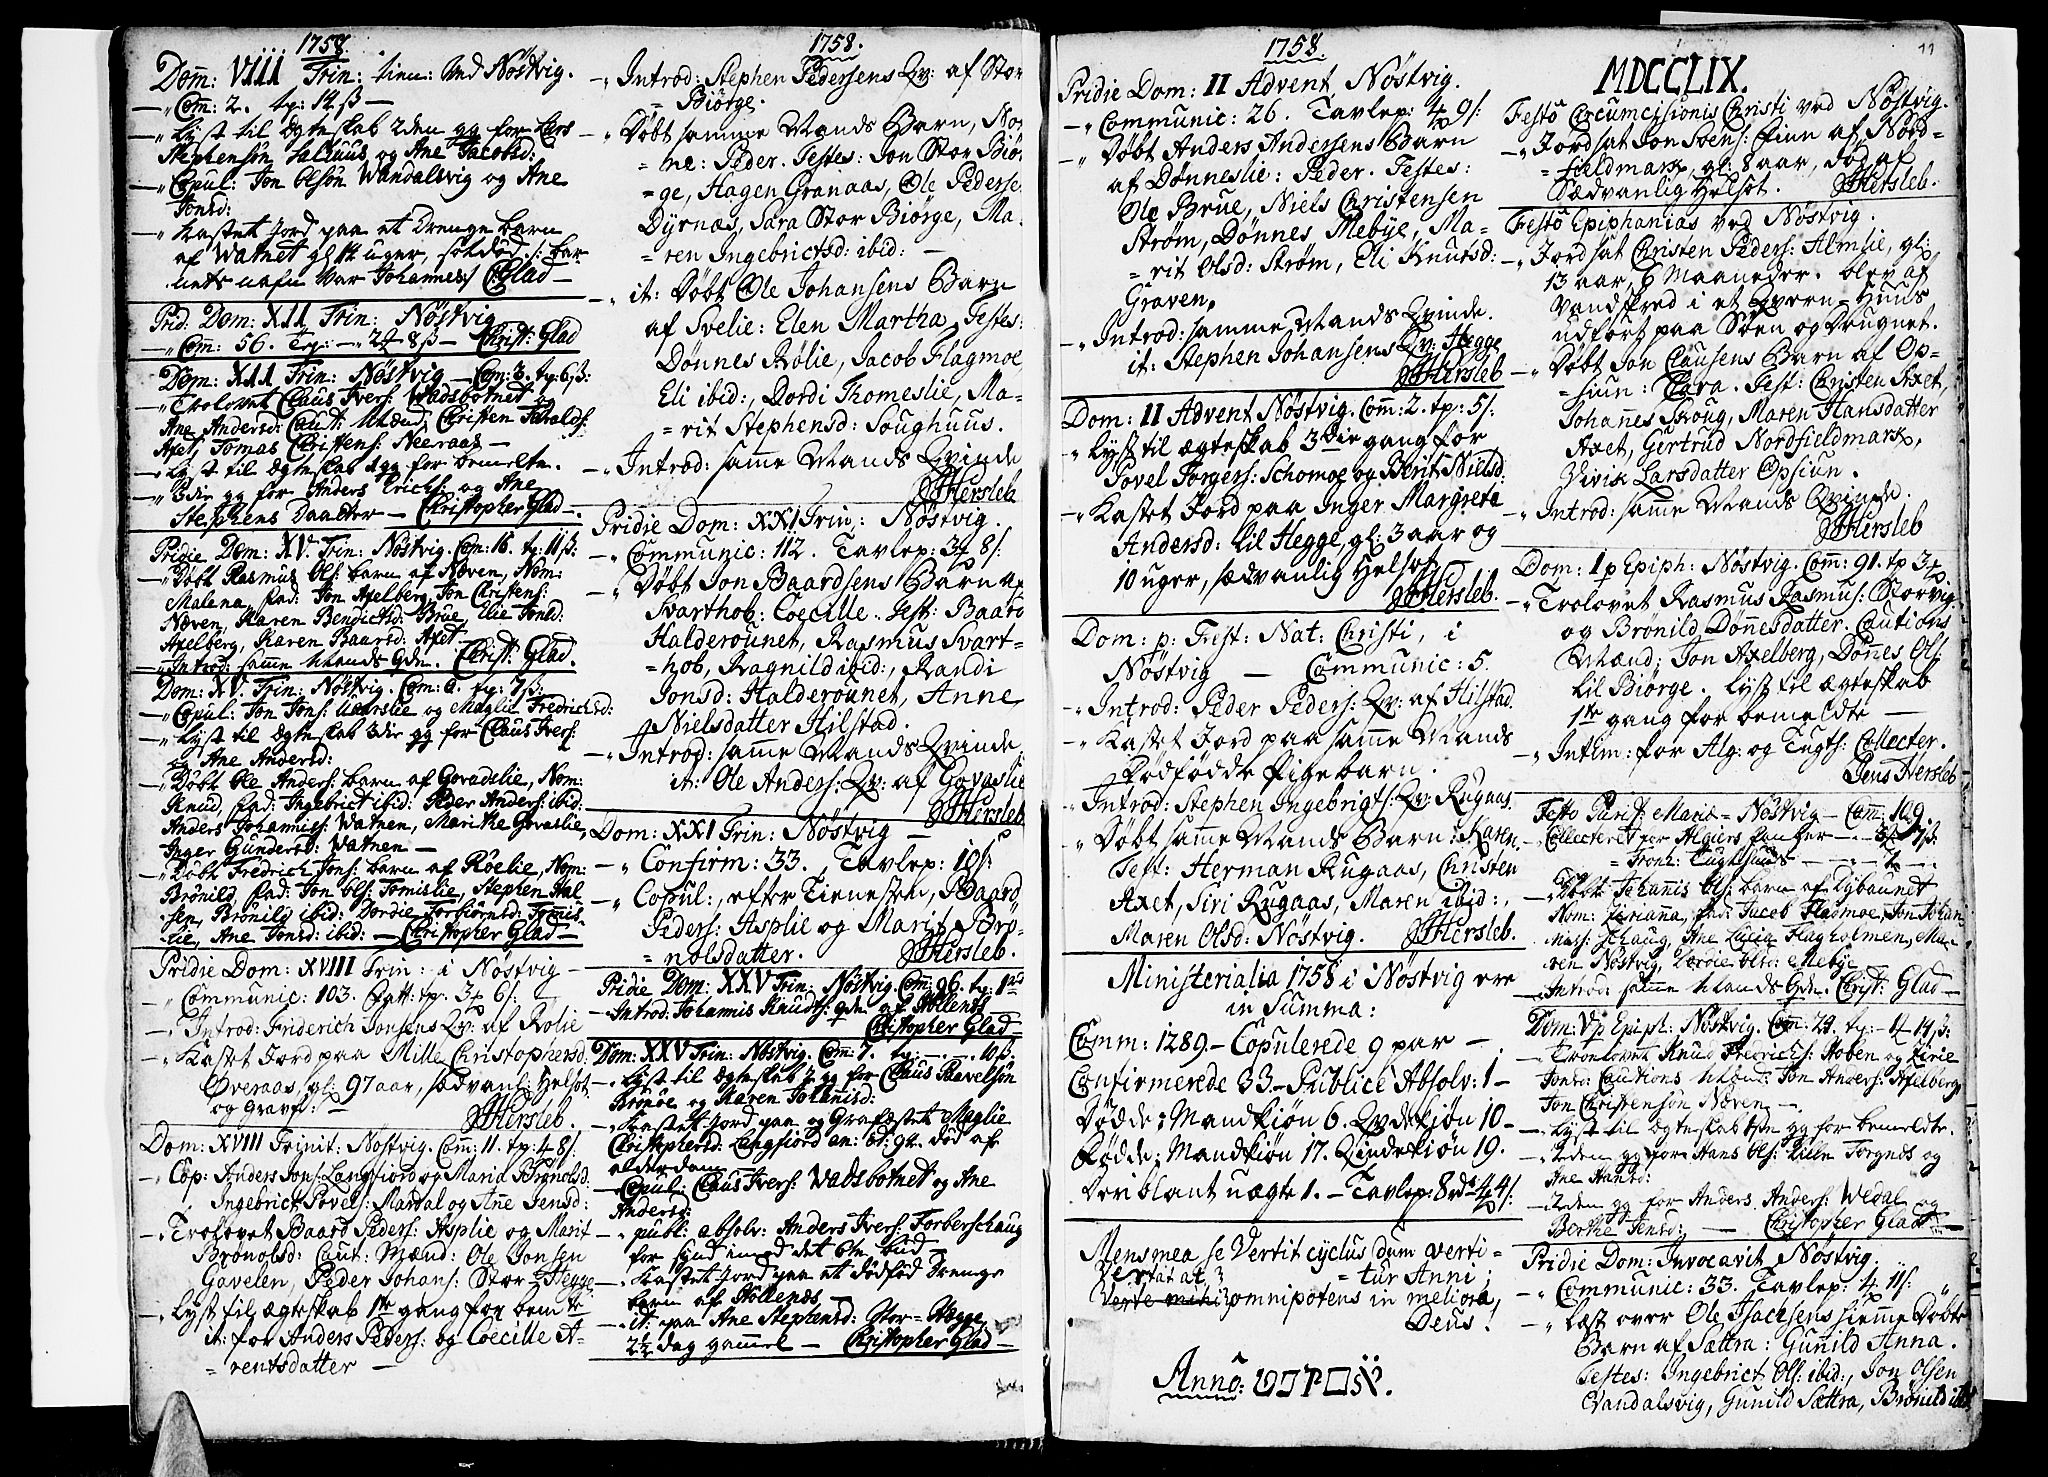 1758
Dom: VIII Trin: tien: ved Nøstvig.
—" Com: 2. tp: 14 ß —
—" Lyst til Ægteskab 2den gg for Lars
Stephensøn Salsuus og Ane Jacobsd:
—" Copul: Jon Olsøn Wandalsvig og Ane
Jonsd:
—" Kastet jord paa et Drenge barn
af Watnet gl 14 uger, sotdød /: bar-
nets nafn var Johannes:/ C: Glad —
Prid: Dom: XII Trin: Nøstvig
—" Com: 56. Tp: —" 2 8 ß — Christ: Glad
Dom: XII Trin: Nøstvig — Com: 3. tp: 6 ß:
—" Trolovet Claus Ivers: Wadsbotnet og
Ane Andersd: Caut: Mænd: Christen Haralds:
Axet, Tomas Christens: Neeraas —
—" Lyst til Ægteskab 1 gg for bemelte.
—" 3die gg for Anders Erichs: og Ane
Stephens Daatter — Christopher Glad —.
Pridie Dom: XV. Trin: Nøstvig. Com: 16. tp: 11 ß:
—" Døbt Rasmus Ols: barn af Næven, Nom:
Malena, fad: Jon Axelberg, Jon Christens:
Næven, Karen Bendictsd: Brue, Elie Jonsd:
Axelberg, Karen Baarsd: Axet —
—" Introd: samme Mands Qde. Christ: Glad.
Dom: XV. Trin: Nøstvig. Com: 6. tp: 7 ß:
—" Copul: Jon Jons: Uharslie og Maglie Fredrichsd:
—" Lyst til Ægteskab 3die gg for Claus Ivers:
og Ane Andersd:
—" Døbt Ole Anders: barn af Govaslie, Nom:
Knud, fad: Ingebrict ibid: Peder Anders: ibid:
Anders Johanniss: Watnen, Marithe Govaslie,
Inger Gundersd: Watnen —
—" Døbt Fredrich Jons: barn af Røelie, Nom:
Brønild, fad: Jon Ols: Tomislie, Stephen Hal-
sen, Brønild ibid: Dordie Torbiørnsd: Tomis-
lie, Ane Jonsd: ibid: — Christopher Glad —
Pridie Dom: XVIII Trin: i Nøstvig —
—" Communic: 103. tp: 3 6 ß: —
—" Introd: Friderich Jonsens Qv: af Rølie
—" Kastet Jord paa Mille Christophersd:
Øveraas, gl: 97 aar, sædvanl: Helsot
og Gravf: — JHersleb.
Dom: XVIII Trinit: Nøstvig. Com: 11. tp: 4 8 ß:
—" Cop: Anders Jons: Langfiord og Maria Brønolsd:
Ingebrict Povels: Mardal og Ane Jensd:
—. Trolovet Baard Peders: Asplie og Marit
Brønolsd: Caut: Mænd: Ole Jonsen
Gavelen, Peder Johans: Stor-Hegge
—" Lyst til ægteskab 1te gang for bemte
it: for Anders Peders: og Coecille A-
=ventsdatter —
1758.
—" Introd: Stephen Pedersens Qv: af Stor
= Biørge.
—" Døbt samme Mands Barn, No-
=ne: Peder. Testes: Jon Stor Biør-
=ge, Hagen Granaas, Ole Peders:
Dyrnæs, Sara Stor Biørge, Ma-
=ren Ingebrictsd: ibid: —
—" it: Døbt Ole Johansens Barn
af Svelie: Elen Martha, Testes:
Dønnes Rølie, Jacob Flagmoe,
Eli ibid:, Dordi Thomeslie, Ma-
=rit Stephensd: Soughuus.
—" Introd: samme Mands Qvinde
JHersleb
Pridie Dom: XXI Trin: Nøstvig.
—" Communic: 112. Tavlep: 3 8 ß:
—" Døbt Jon Baardsens Barn af
Svarthob: Coecille. Test: Baard
Halderounet, Rasmus Svart-
=hob, Ragnild ibid:, Randi
Jonsd: Halderounet, Anne
Nielsdatter Hilstad.
—" Introd: samme Mands Qvinde
it: Ole Anders: Qv: af Govaslie
JHersleb
Dom: XXI Trin: Nøstvig —
—" Confirm: 33. Tavlep: 10 ß:
—" Copul:, efter Tienesten, Baard
Peders: Asplie og Marit Brø-
=nolsdatter. JHersleb.
Pridie Dom: XXV Trin: Nøstvig. Com: 96. tp: 1
—" Introd: Johannis Knudts: qde af Hollenes —
Christopher Glad —
Dom: XXV Trin: Nøstvig. Com: 7. tp. —. 10 ß:
—. Lyst til Ægteskab gg for Claus Pavelsøn
Bronøe og Karen Johanisd:
—. Kastet jord paa og Grafæstet Maglie
Christophersd: Langfiord en: 92. død af
alderdom
—. Copul: Claus Ivers: Wadsbotnet og Ane
Andersd:
—. publ: absolv: Anders Ivers: Forberschaug
for synd imod det 6te bud —
—. Kastet jord paa et dødfød Drenge
barn af Hollenæs —
—. it: paa Ane Stephensd: Stor-Hægge
2½ dag gammel — Christopher Glad —
1758.
Pridie Dom: II Advent, Nøstvig.
—" Communic: 26. Tavlep: 4 9 ß:
—" Døbt Anders Andersens Barn
af Dønneslie: Peder. Testes:
Ole Brue, Niels Christensen
Strøm, Dønnes Mebye, Ma-
=rit Olsd: Strøm, Eli Knutsd:
Graven.
—" Introd: samme Mands Qvinde.
it: Stephen Johansens Qv: Hegge
JHersleb
Dom: II Advent Nøstvig. Com: 2. tp: 5 ß:
—" Lyst til ægteskab 3die gang for
Povel Torgers: Schomoe og Berit Nielsd:
—" Kastet Jord paa Inger Margreta
Andersd: Lil Hegge, gl: 3 aar og
10 uger, sædvanlig Helsot.
JHersleb.
Dom: p: Fest: Nat: Christi, i
Nøstvig — Communic: 5.
—" Introd: Peder Peders: Qv: af Hilstad.
—" Kastet Jord paa samme Mands
Dødfødde Pigebarn.
—" Introd: Stephen Ingebrigts: Qv: Rugaas.
—" Døbt samme Mands Barn: Karen.
Test: Herman Rugaas, Christen
Axet, Siri Rugaas, Maren ibid:,
Maren Olsd: Nøstvig. JHersleb.
Ministerialia 1758 i Nøstvig ere
in Summa:
Comm: 1289. — Copulerede 9 par —
Confirmerede 33 — Publice Absolv: 1 —
Dødde: Mandkiøn 6. Qvdekiøn 10 —
Fødde: Mandkiøn 17. Qvindekiøn 19.
Deriblant uægte 1. — Tavlep: 8 rd 4 4 ß:
Mens mea se Vertit cyclus dum verti-
Vertat at, =tur Anni;
Verte mihi omnipotens in meliora,
Deus!
Anno:
11
MDCCLIX.
Festo Circumcisionis Christi ved Nøstvig.
—" Jordsat Jon Svens: Finn af Nord-
=fieldmark, gl: 8 aar, død af
Sædvanlig Helsot. JHersleb.
Festo Epiphanias ved Nøstvig.
—" Jordsat Christen Peders: Almlie, gl:
13 aar, 6 Maaneder. blev af
Vandskred i et Qvern-Huus
udført paa Søen og Druknet.
—" Døbt Jon Clausens Barn af Op-
=siun: Sara. Test: Christen Axet,
Johannes Skoug, Maren Hansdatter
Axet, Gertrud Nordfieldmark,
Vivik Larsdatter Opsiun.
—" Introd: samme Mands Qvinde.
JHersleb
Dom: 1 p Epiph: Nøstvig. Com: 91. tp 3
—" Trolovet Rasmus Rasmus: Storvig
og Brønild Dønnesdatter. Cautions
Mænd: Jon Axelberg, Dønnes Ols:
Lil Biørge. Lyst til ægteskab
1te gang for bemeldte —
—" Intim: for Alg: og Tugts: Collecter.
Jens Hersleb
Festo Purif: Mariæ — Nøstvig — Com: 109.
—. Collecteret for Algiers fanger — 7 ß:
— Tronh: Tugthuus —
—. Døbt Johannis Ols: barn af Dybaunet
Nom: Zerianna, fad: Jacob Fladmoe, Jon Johan-
niss: Schaug, Ane Lucia Flagholmen, Ma-
ren Nøstvig, Dordie Olsd: Mebye —
—. Introd: samme Mands Qde. Christ: Glad —
Dom: V p Epiph: Nøstvig. Com: 24. tp: — 1 14 ß:
—. Troelovet Knud Fredrichs: Hoben og Zirie
Jonsd: Cautions Mænd: Jon Anders: Axelberg,
Jon Christensøn Næven —.
—. Lyst til Ægteskab 1ste gg for bemeldte.
—. 2den gg for Hans Ols: Lille Torgnes og
Ane Hansd:
—. 2den gg for Anders Anders: Wedal og
Berthe Jensd: — Christopher Glad —
Pridie Dom: Invocavit Nøstvig.
—" Communic: 33. Tavlep: 4 11 ß:
—" Læst over Ole Isachsens hiemme Døbte
Barn af Sættra: Gunild Anna.
Testes: Ingebrict Ols: ibid:, Jon Olsen
Vandalsvig, Gunild Sættra, Brønild ibid